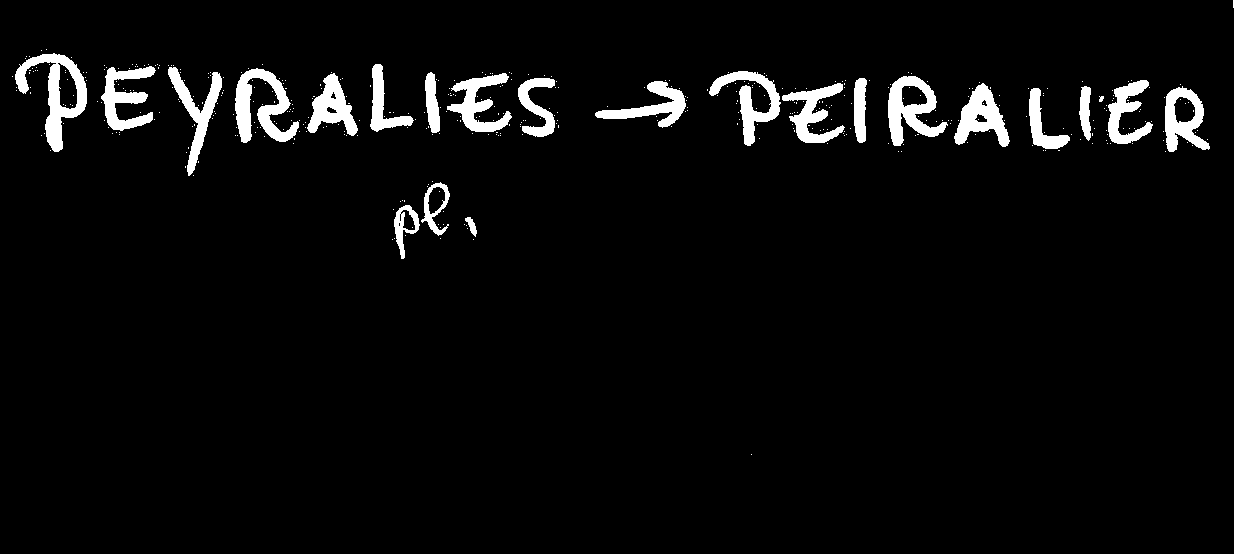 PEYRALIES → PEIRALIER
pl.